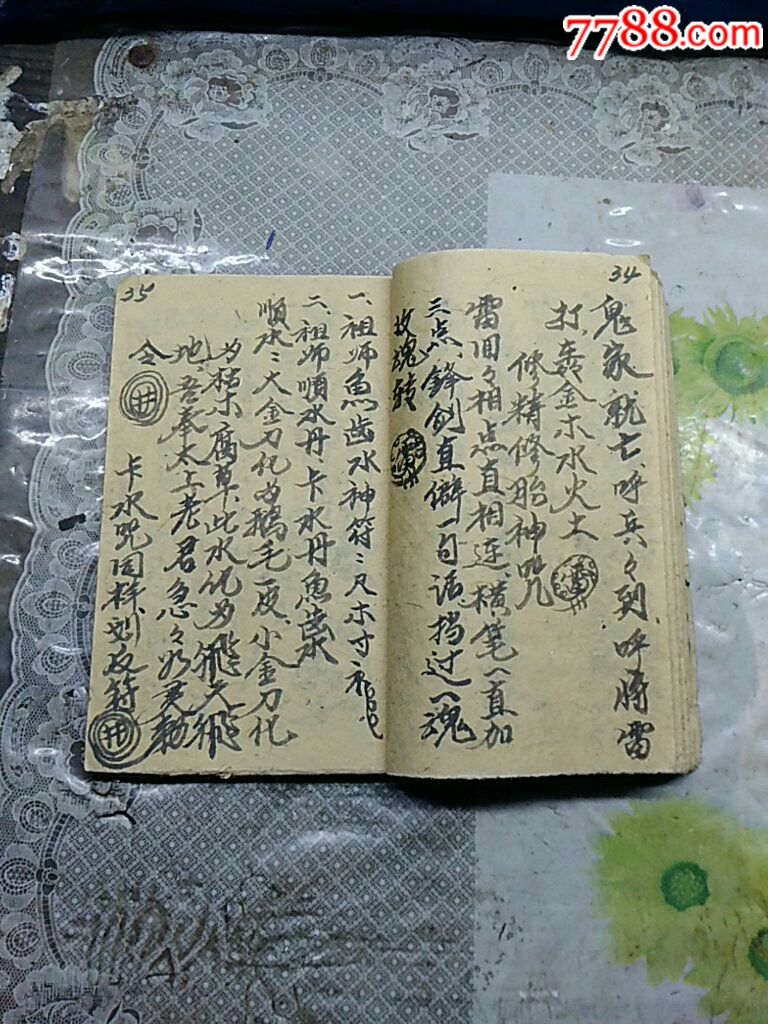 7788.com
34
鬼家就亡、呼兵々到呼將雷
打、轰金木水火土
修精修胎神咒
雷回々相点直相連、橫笔一直加
三点、鋒剑直僻一句话、挡过一魂
魂转
35
一、祖师魚齿水神符:尺木寸
二、祖师順水丹、卡水丹魚齿水
順水:大金刀化为鹅毛一皮、小金刀化
为枯木腐草、此水化为飛天飛
地、吾奉太上老君急々如灵勅
令 井
卡水咒同样划反符 井